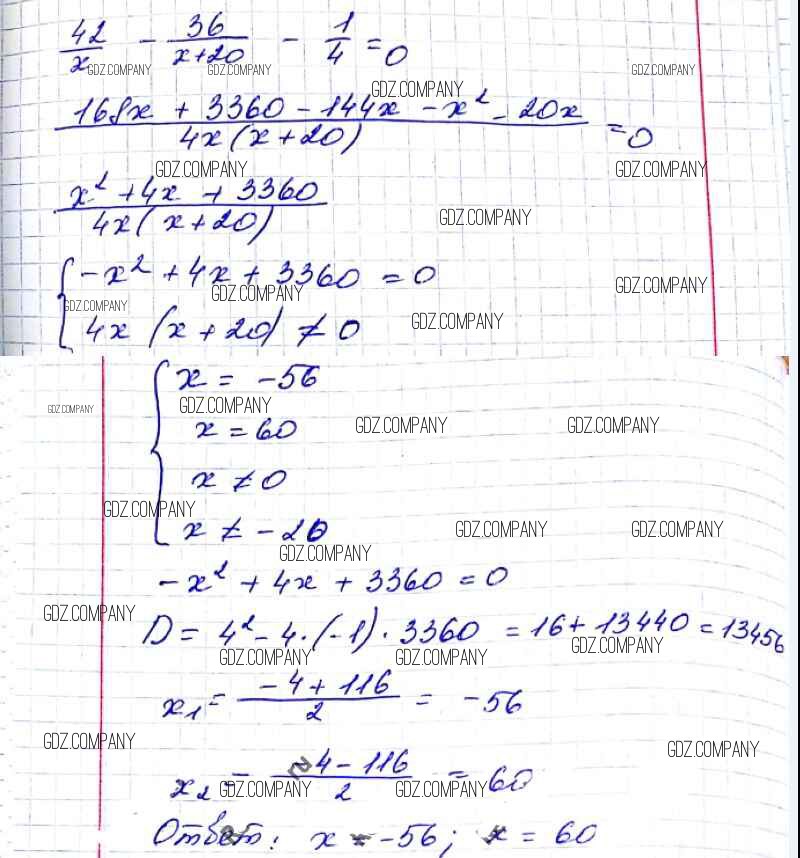 42/x - 36/(x+20) - 1/4 = 0
GDZ.COMPANY GDZ.COMPANY GDZ.COMPANY
GDZ.COMPANY
(168x + 3360 - 144x - x² - 20x)/(4x(x+20)) = 0
GDZ.COMPANY GDZ.COMPANY
(x² + 4x + 3360)/(4x(x+20))
GDZ.COMPANY
{ -x² + 4x + 3360 = 0
GDZ.COMPANY GDZ.COMPANY GDZ.COMPANY
4x (x+20) ≠ 0
GDZ.COMPANY
{ x = -56
GDZ.COMPANY GDZ.COMPANY
x = 60
GDZ.COMPANY GDZ.COMPANY
x ≠ 0
GDZ.COMPANY
x ≠ -20
GDZ.COMPANY GDZ.COMPANY
GDZ.COMPANY
-x² + 4x + 3360 = 0
GDZ.COMPANY
D = 4² - 4·(-1)·3360 = 16 + 13440 = 13456
GDZ.COMPANY GDZ.COMPANY GDZ.COMPANY
x₁ = (-4+116)/2 = -56
GDZ.COMPANY GDZ.COMPANY
x₂ = (-4-116)/2 = 60
GDZ.COMPANY GDZ.COMPANY
Ответ: x = -56; x = 60